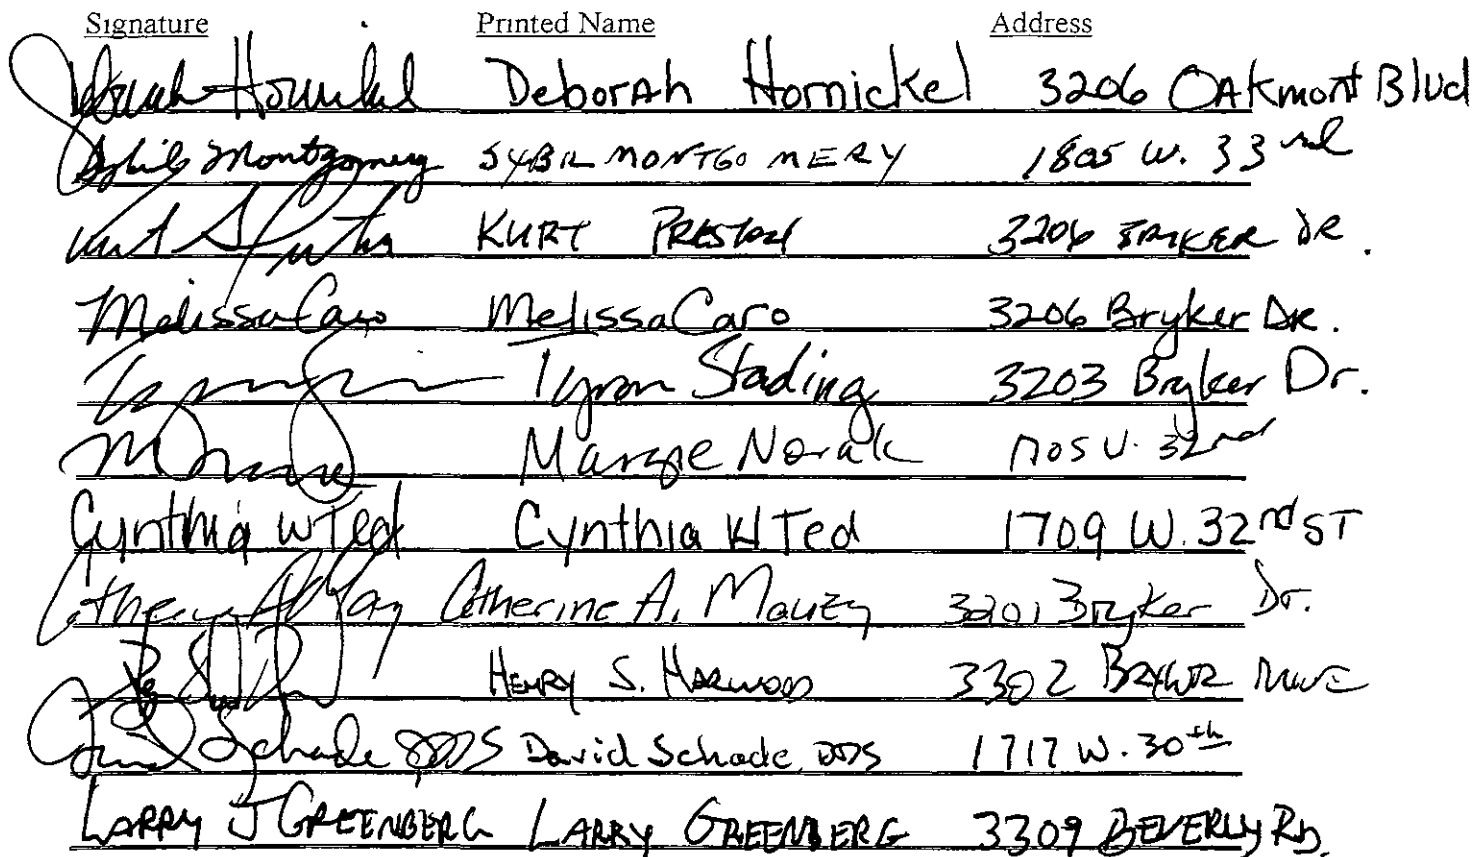 Signature Printed Name Address
Deborah Hornickel Deborah Hornickel 3206 Oakmont Blvd
Sybil Montgomery SYBIL MONTGOMERY 1805 W. 33rd
KURT PRESTON 3206 BRYKER DR.
Melissa Caro Melissa Caro 3206 Bryker DR.
Tyron Stading 3203 Bryker Dr.
Margie Novak 1705 W. 32nd
Cynthia W Ted Cynthia W Ted 1709 W. 32nd ST
Catherine A. Mauzy 3201 Bryker Dr.
HENRY S. HARWOOD 3302 BRYKER DRIVE
David Schade DDS David Schade, DDS 1717 W. 30th
LARRY J GREENBERG LARRY GREENBERG 3309 BEVERLY RD.